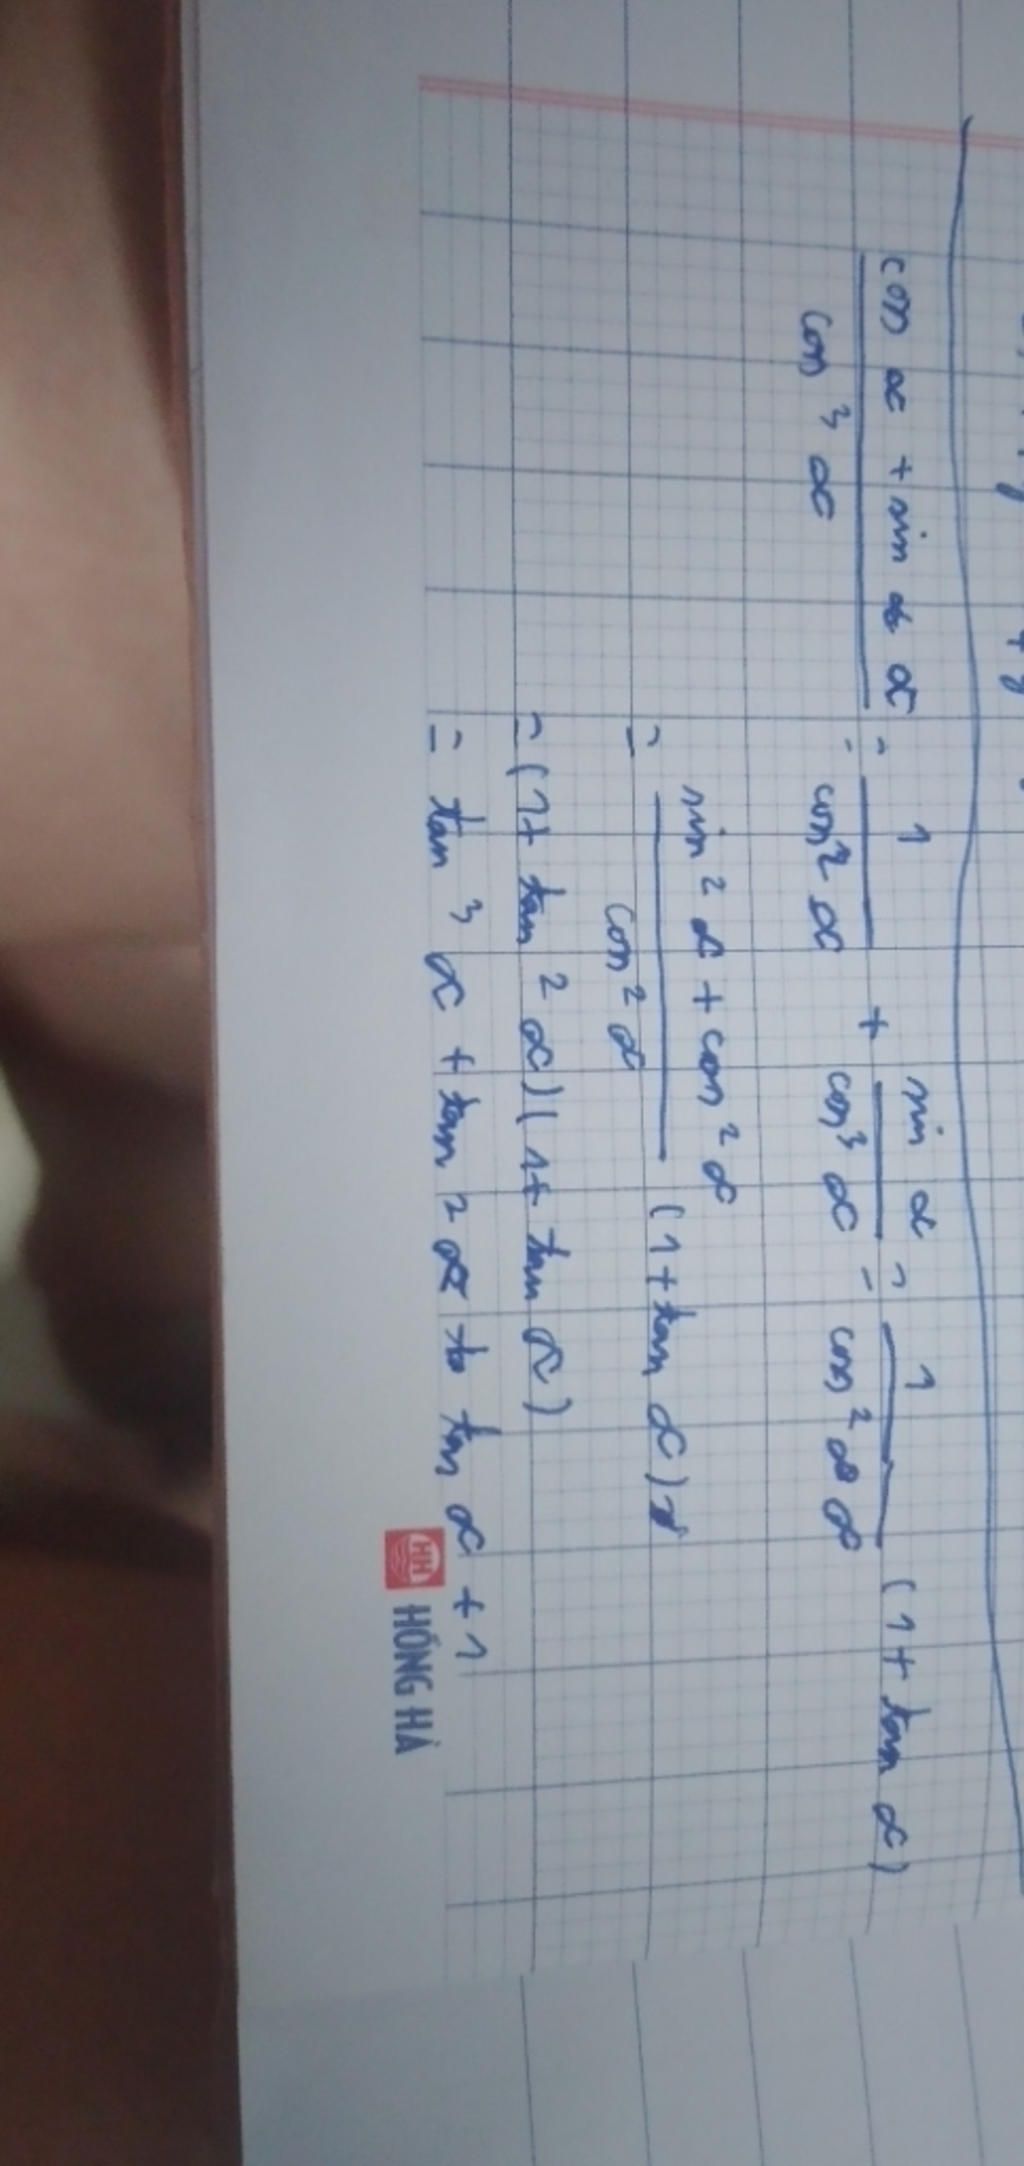 cos α + sin α / cos³ α = 1 / cos² α + sin α / cos³ α = 1 / cos² α (1 + tan α)
= sin² α + cos² α / cos² α (1 + tan α)
= (1 + tan² α)(1 + tan α)
= tan³ α + tan² α + tan α + 1
HỒNG HÀ